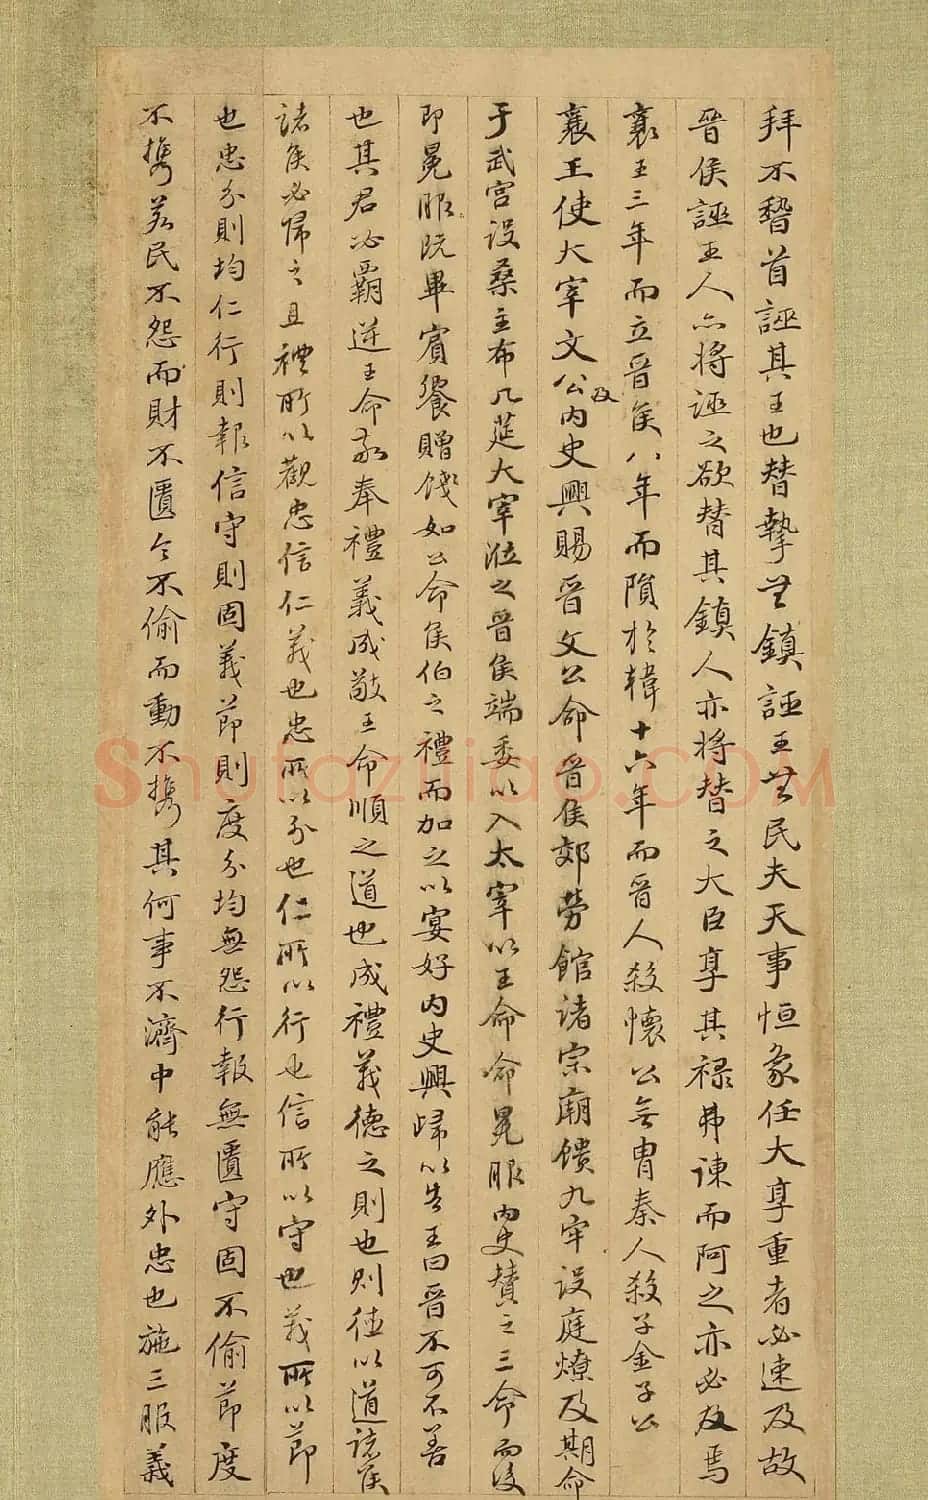 拜不稽首誣其王也替摯無鎮誣王無民夫天事恒象任大享重者必速及故
晉侯誣王人亦將誣之欲替其鎮人亦將替之大臣享其禄弗諫而阿之亦必及焉
襄王三年而立晉侯八年而隕於韓十六年而晉人殺懷公無胄秦人殺子金子公
襄王使大宰文公及內史興賜晉文公命晉侯郊勞館諸宗廟饋九牢設庭燎及期命
于武宮設桑主布几筵大宰涖之晉侯端委以入太宰以王命命冕服內史贊之三命而後
即冕服既畢賓饗贈餞如公命侯伯之禮而加之以宴好內史興歸以告王曰晉不可不善
也其君必霸逆王命敬奉禮義成敬王命順之道也成禮義德之則也則德以道諸侯
諸侯必歸之且禮所以觀忠信仁義也忠所以分也仁所以行也信所以守也義所以節
也忠分則均仁行則報信守則固義節則度分均無怨行報無匱守固不偷節度
不攜若民不怨而財不匱令不偷而動不攜其何事不濟中能應外忠也施三服義
Shufaziliao.COM